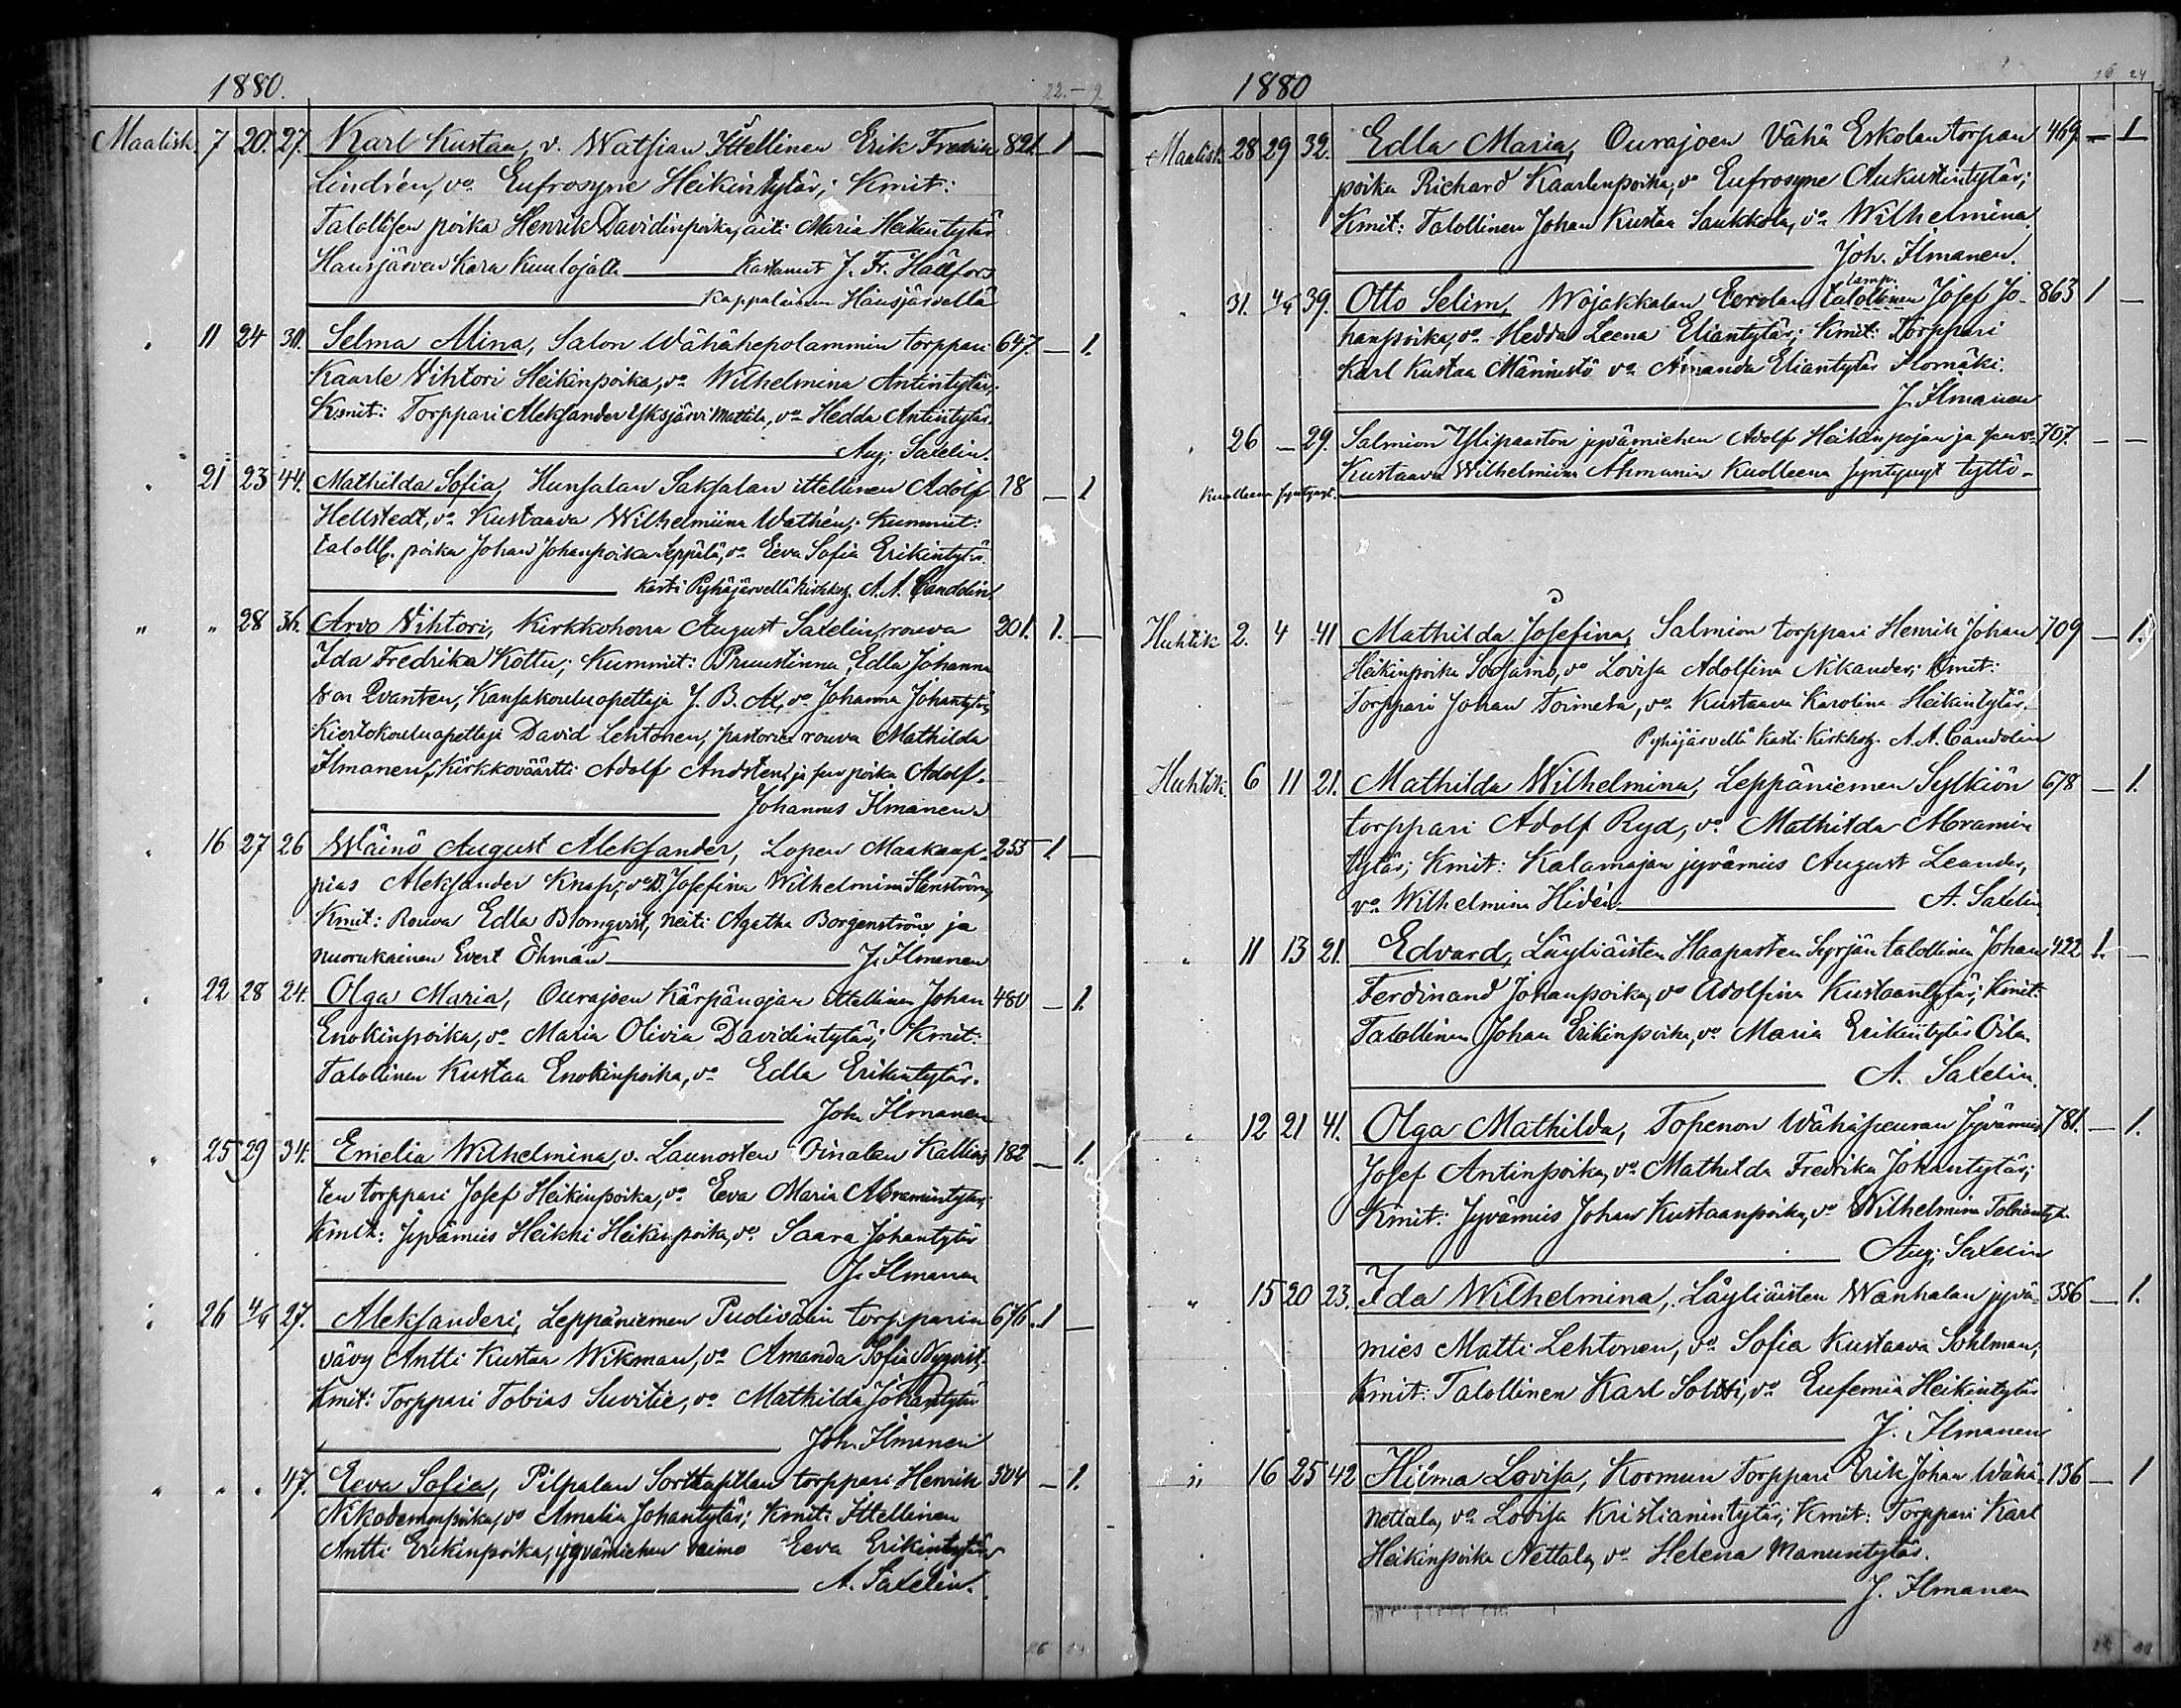 1880. 22. – 9
Maalisk. 7 20. 27. Karl Kustaa, v. Watsian Ittellinen Erik Fredrik 821. 1 —
Lindrén, vo Eufrosyne Heikintytär; Kmit:
Talollisen poika Henrik Davidinpoika, äiti Maria Heikintytär
Hausjärven Kara Kuulojalla — Kastanut J. Fr. Hällfors
Kappalainen Hausjärvellä
" 11 24 30. Selma Mina, Salon Wähähepolammin torppari 647. — 1.
Kaarle Vihtori Heikinpoika, vo Wilhelmina Antintytär;
Kmit: Torppari Aleksander Yksjärvi Mattila, vo Hedda Antintytär.
Aug. Saxelin.
" 21 23 44. Mathilda Sofia, Hunsalan Saksalan ittellinen Adolf 18 — 1
Hellstedt, vo Kustaava Wilhelmiina Wathén; Kummit:
talolls. poika Johan Johanpoika Seppälä, vo Eeva Sofia Erikintytär.
Kasti Pyhäjärvellä Kirkkoh. A. A. Canddlin.
" " 28 36. Arvo Vihtori, Kirkkoherra August Saxelin, rouva 201. 1. —
Ida Fredrika Kottu; Kummit: Pruustinna Edla Johanna
von Qvanten, Kansakouluopettaja J. B. Ax, vo Johanna Johantytär,
Kiertokouluopettaja David Lehtonen, pastorin rouva Mathilda
Ilmanen, Kirkkoväärtti Adolf Andsten ja sen poika Adolf.
Johannes Ilmanen.
" 16 27 26 Wäinö August Aleksander, Lopen Maakaup- 255 1 —
pias Aleksander Knaps, vo D. Josefina Wilhelmina Stenström,
Kmit: Rouva Edla Blomqvist, Neiti Agatha Borgenström ja
nuorukainen Evert Öhman — J. Ilmanen
" 22 28 24. Olga Maria, Ourajoen Kärpänojan ittellinen Johan 480 — 1.
Enokinpoika, vo Maria Olivia Davidintytär; Kmit:
Talollinen Kustaa Enokinpoika, vo Edla Erikintytär.
Joh. Ilmanen
" 25 29 34. Emelia Wilhelmina, v. Launosten Oinalan Kallios 182 — 1.
ten torppari Josef Heikinpoika, vo Eeva Maria Abramintytär,
Kmit: Jyvämies Heikki Heikinpoika, vo Saara Johantytär
J. Ilmanen
" 26 4/4 27. Aleksanderi, Leppäniemen Pudivälin torpparin 676. 1 —
vävy Antti Kustaa Wikman, vo Amanda Sofia Nyqvist.
Kmit: Torppari Tobias Suvitie, vo Mathilda Johantytär
Joh. Ilmanen
" " " 47. Eeva Sofia, Pilpalan torppari Henrik 504 — 1.
Nikodemonpoika, vo Amalia Johantytär; Kmit: Ittellinen
Antti Erikinpoika, jyvämiehen vaimo Eeva Erikintytär
A. Saxelin.
1880 26 24
Maalisk. 28 29 32. Edla Maria, Ourajoen Vähä Eskolan torpan 469. — 1
poika Richard Kaarlenpoika, vo Eufrosyne Aukustintytär;
Kmit: Talollinen Johan Kustaa Saukkola, vo Wilhelmina.
Joh. Ilmanen.
lamp.
" 31. 4/4 39. Otto Selim, Wojakkalan Eerolan talollinen Josef Jo- 863 1 —
hanpoika, vo Hedda Leena Eliantytär; Kmit: Torppari
Karl Kustaa Männistö vo Amanda Eliantytär Ilomäki.
J. Ilmanen
" 26 — 29. Salmion Ylipaaston jyvämiehen Adolf Heikinpojan ja sen vo 707. — —
Kustaava Wilhelmiina Åhmanin Kuolleena syntynyt tyttö —
Kuolleena syntynyt.
Huhtik 2. 4 41 Mathilda Josefina, Salmion torppari Henrik Johan 709 — 1.
Heikinpoika, vo Lovisa Adolfina Nikander; Kmit:
Torppari Johan Toimela, vo Kustaava Karolina Heikintytär,
Pyhäjärvellä Kasti Kirkkoh. A. A. Candolin
Huhtik. 6 11 21. Mathilda Wilhelmina, Leppäniemen Sylkiön 678 — 1.
torppari Adolf Ryd, vo Mathilda Abramin
tytär; Kmit: Kalamajan jyvämies August Leander,
vo Wilhelmina Hidén — A. Saxelin
" 11 13 21. Edvard, Läyliäisten Haaparten Syrjän talollinen Johan 422 1. —
Ferdinand Johanpoika, vo Adolfina Kustaantytär; Kmit:
Talollinen Johan Erikinpoika, vo Maria Erikintytär Oila.
A. Saxelin.
" 12 21 41. Olga Mathilda, Topenon Wähäpeuran Jyvämies 781. — 1.
Josef Antinpoika, vo Mathilda Fredrika Johantytär;
Kmit: Jyvämies Johan Kustaanpoika, vo Wilhelmina Tobiantyt.
Aug. Saxelin
" 15 20 23. Ida Wilhelmina, Läyliäisten Wanhalan jyvä- 356 — 1.
mies Matti Lehtonen, vo Sofia Kustaava Sohlman;
Kmit: Talollinen Karl Soltti, vo Eufemia Heikintytär
J. Ilmanen
" 16 25 42 Hilma Lovisa, Kormun Torppari Erik Johan Wähä- 136 — 1
Nettala, vo Lovisa Kristianintytär; Kmit: Torppari Karl
Heikinpoika Nettala, vo Helena Manuntytär.
J. Ilmanen